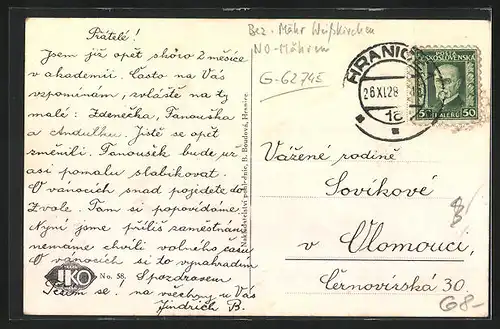 Přátelé!
Jsem již opět skoro 2 měsíce
v akademii. Často na Vás
vzpomínám, zvláště na ty
malé: Zdenečka, Tanouška
a Andulku. Jistě se opět
změnili. Tanoušek bude už
asi pomalu slabikovat.
O vánocích snad pojedete do
Zvole. Tam si popovídáme.
Nyní jsme příliš zaměstnáni
nemáme chvíli volného času
O vánocích si to vynahradím
S pozdravem
Těším se! na všechny u Vás
Jindřich B.
JKO
No. 58.
Nakladatelství pohlednic, B. Boudová, Hranice
Bez. Mähr Weißkirchen
NO-Mähren
G-6274E
HRANICE
26 XI 28
18
POSTA
ČESKOSLOVENSKÁ
50 HALÉŘŮ 50
Vážené rodině
Sovíkové
v Olomouci,
Černovírská 30.
8
G8-